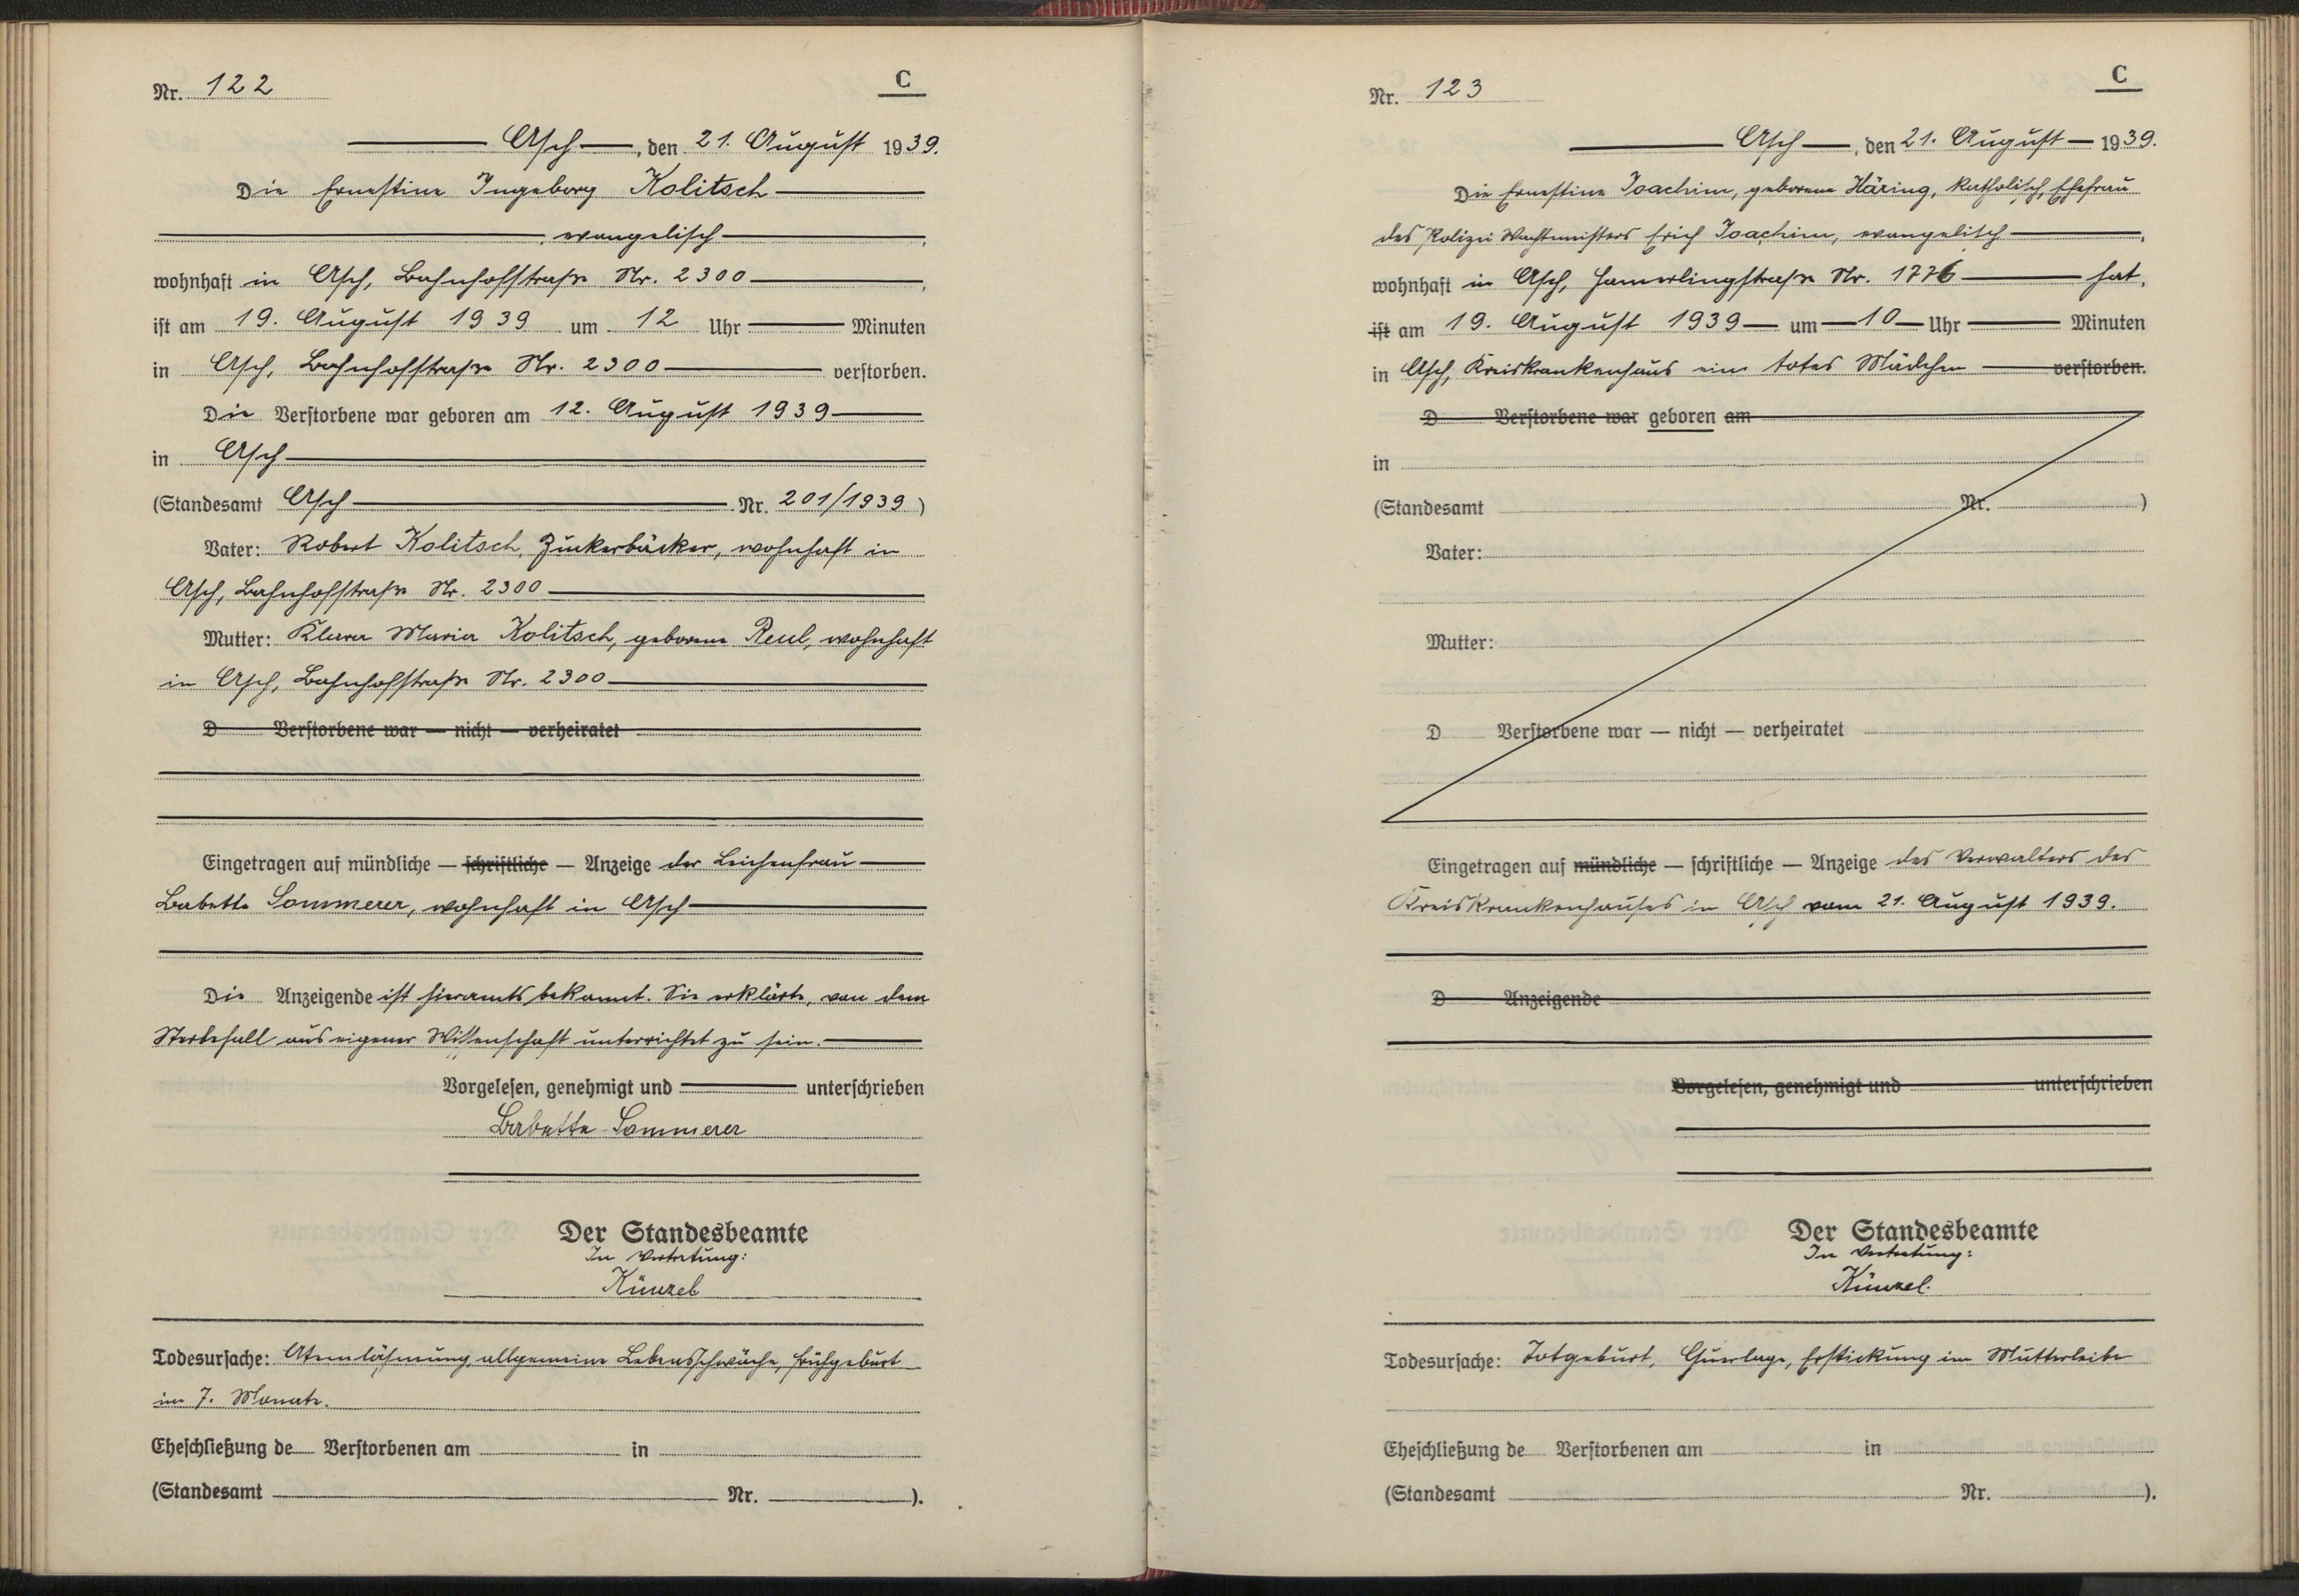 Nr. 122
C
Asch, den 21. August 1939.
Die Ernestine Ingeborg Kolitsch
, evangelisch,
wohnhaft in Asch, Bahnhofstraße Nr. 2300,
ist am 19. August 1939 um 12 Uhr Minuten
in Asch, Bahnhofstraße Nr. 2300 verstorben.
Die Verstorbene war geboren am 12. August 1939
in Asch
(Standesamt Asch Nr. 201/1939)
Vater: Robert Kolitsch, Zuckerbäcker, wohnhaft in
Asch, Bahnhofstraße Nr. 2300
Mutter: Klara Maria Kolitsch, geborene Reul, wohnhaft
in Asch, Bahnhofstraße Nr. 2300
D Verstorbene war — nicht — verheiratet
Eingetragen auf mündliche — schriftliche — Anzeige der Leichenfrau
Babette Sommerer, wohnhaft in Asch
Die Anzeigende ist hieramts bekannt. Sie erklärte, von dem
Sterbefall aus eigener Wissenschaft unterrichtet zu sein.
Vorgelesen, genehmigt und unterschrieben
Babette Sommerer
Der Standesbeamte
In Vertretung:
Künzel
Todesursache: Atemlähmung, allgemeine Lebensschwäche, Frühgeburt
im 7. Monate.
Eheschließung de Verstorbenen am in
(Standesamt Nr. ).
Nr. 123
C
Asch, den 21. August 1939.
Die Ernestine Joachim, geborene Häring, katholisch, Ehefrau
des Polizei Wachtmeisters Erich Joachim, evangelisch,
wohnhaft in Asch, Hamerlingstraße Nr. 1776 hat,
ist am 19. August 1939 um 10 Uhr Minuten
in Asch, Kreiskrankenhaus ein totes Mädchen verstorben.
D Verstorbene war geboren am
in
(Standesamt Nr. )
Vater:
Mutter:
D Verstorbene war — nicht — verheiratet
Eingetragen auf mündliche — schriftliche — Anzeige des Verwalters des
Kreiskrankenhauses in Asch vom 21. August 1939.
D Anzeigende
Vorgelesen, genehmigt und unterschrieben
Der Standesbeamte
In Vertretung:
Künzel.
Todesursache: Totgeburt, Querlage, Erstickung im Mutterleibe
Eheschließung de Verstorbenen am in
(Standesamt Nr. ).